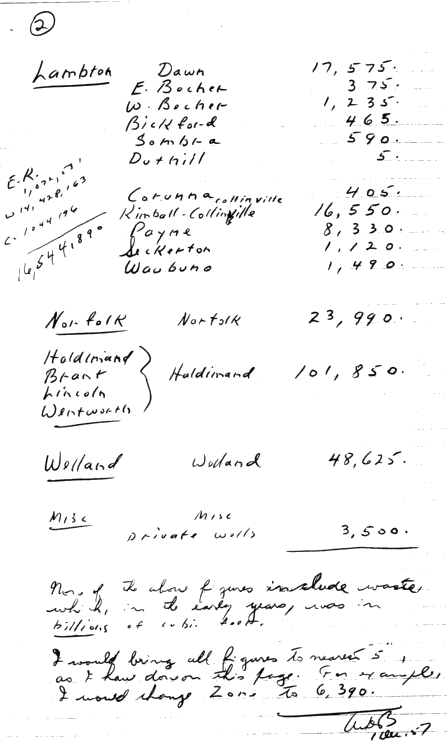 2
Lambton Dawn 17,575.
E. Becher 375.
W. Becher 1,235.
Bickford 465.
Sombra 590.
Duthill 5.
Corunna collinville 405.
Kimball-Collinville 16,550.
Payne 8,330.
Seckerton 1,120.
Waubuno 1,490.
E.R.
1,072,
W 14,428,163
C. 1044 196
16,544,890
Norfolk Norfolk 23,990.
Haldimand
Brant
Lincoln
Wentworth
Haldimand 101,850.
Welland Welland 48,625.
Misc Misc
private wells 3,500.
None of the above figures include waste,
which, in the early years, was in
billions of cubic feet.
I would bring all figures to nearest "5",
as I have done on this page. For example,
I would change Zone to 6,390.